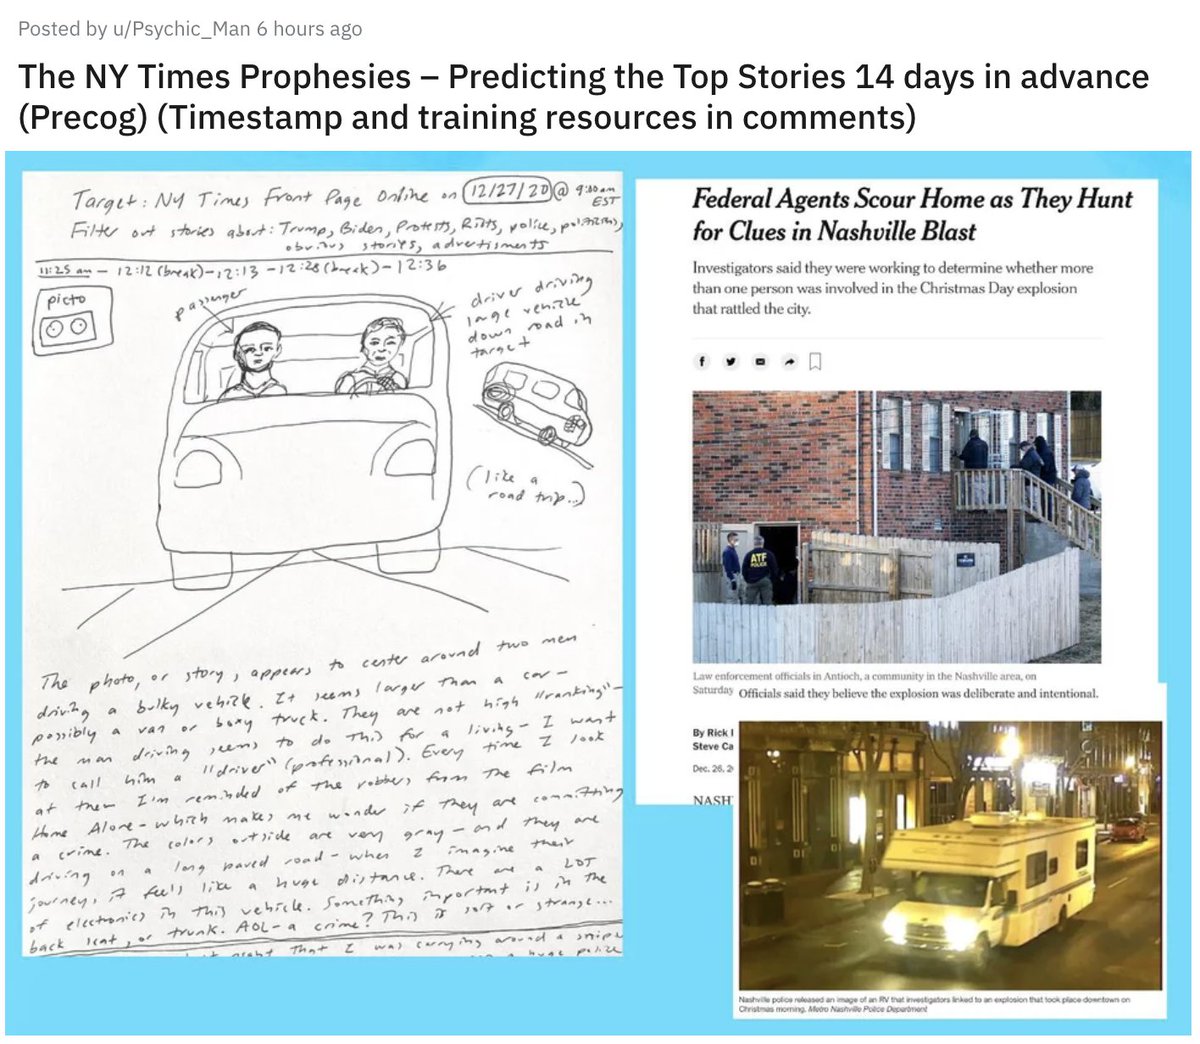 Posted by u/Psychic_Man 6 hours ago
The NY Times Prophesies – Predicting the Top Stories 14 days in advance
(Precog) (Timestamp and training resources in comments)
Target: NY Times Front Page Online on 12/27/20 @ 9:30 am
EST
Filter out stories about: Trump, Biden, Protests, Riots, police, politicians,
obvious stories, advertisments
11:25 am – 12:12 (break) – 12:13 – 12:28 (break) – 12:36
picto
passenger
driver driving
large vehicle
down road in
target
(like a
road trip..)
The photo, or story, appears to center around two men
driving a bulky vehicle. It seems larger than a car –
possibly a van or boxy truck. They are not high "ranking" –
the man driving seems to do this for a living – I want
to call him a "driver" (professional). Every time I look
at them I'm reminded of the robbers from the film
Home Alone – which makes me wonder if they are committing
a crime. The colors outside are very gray – and they are
driving on a long paved road – when I imagine their
journey, it feels like a huge distance. There are a LOT
of electronics in this vehicle. Something important is in the
back seat, or trunk. AOL – a crime? This is sort of strange...
that I was carrying around a
Federal Agents Scour Home as They Hunt
for Clues in Nashville Blast
Investigators said they were working to determine whether more
than one person was involved in the Christmas Day explosion
that rattled the city.
ATF
POLICE
Law enforcement officials in Antioch, a community in the Nashville area, on
Saturday Officials said they believe the explosion was deliberate and intentional.
By Rick
Steve Ca
Dec. 26, 2
NASH
Nashville police released an image of an RV that investigators linked to an explosion that took place downtown on
Christmas morning. Metro Nashville Police Department